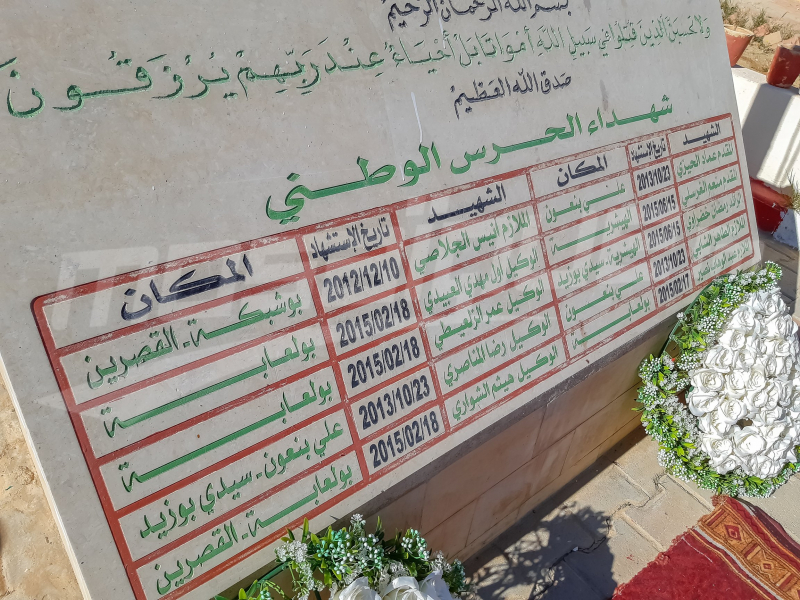 بسم الله الرحمان الرحيم
ولا تحسبن الذين قتلوا في سبيل الله أمواتا بل أحياء عند ربهم يرزقون
صدق الله العظيم
شهداء الحرس الوطني
الشهيد تاريخ الإستشهاد المكان الشهيد تاريخ الإستشهاد المكان
المقدم عماد الحيزي 2013/10/23 علي بنعون الملازم أنيس الجلاصي 2012/12/10 بوشبكة - القصرين
المقدم منعم الغرسلي 2015/06/15 الهيشرية الوكيل أول مهدي العبيدي 2015/02/18 بولعابة
2015/06/15 الهيشرية - سيدي بوزيد الوكيل عمر الزلعيطي 2015/02/18 بولعابة
2013/10/23 علي بنعون الوكيل رضا المناصري 2013/10/23 علي بنعون - سيدي بوزيد
2015/02/17 بولعابة الوكيل هيثم الشواري 2015/02/18 بولعابة - القصرين